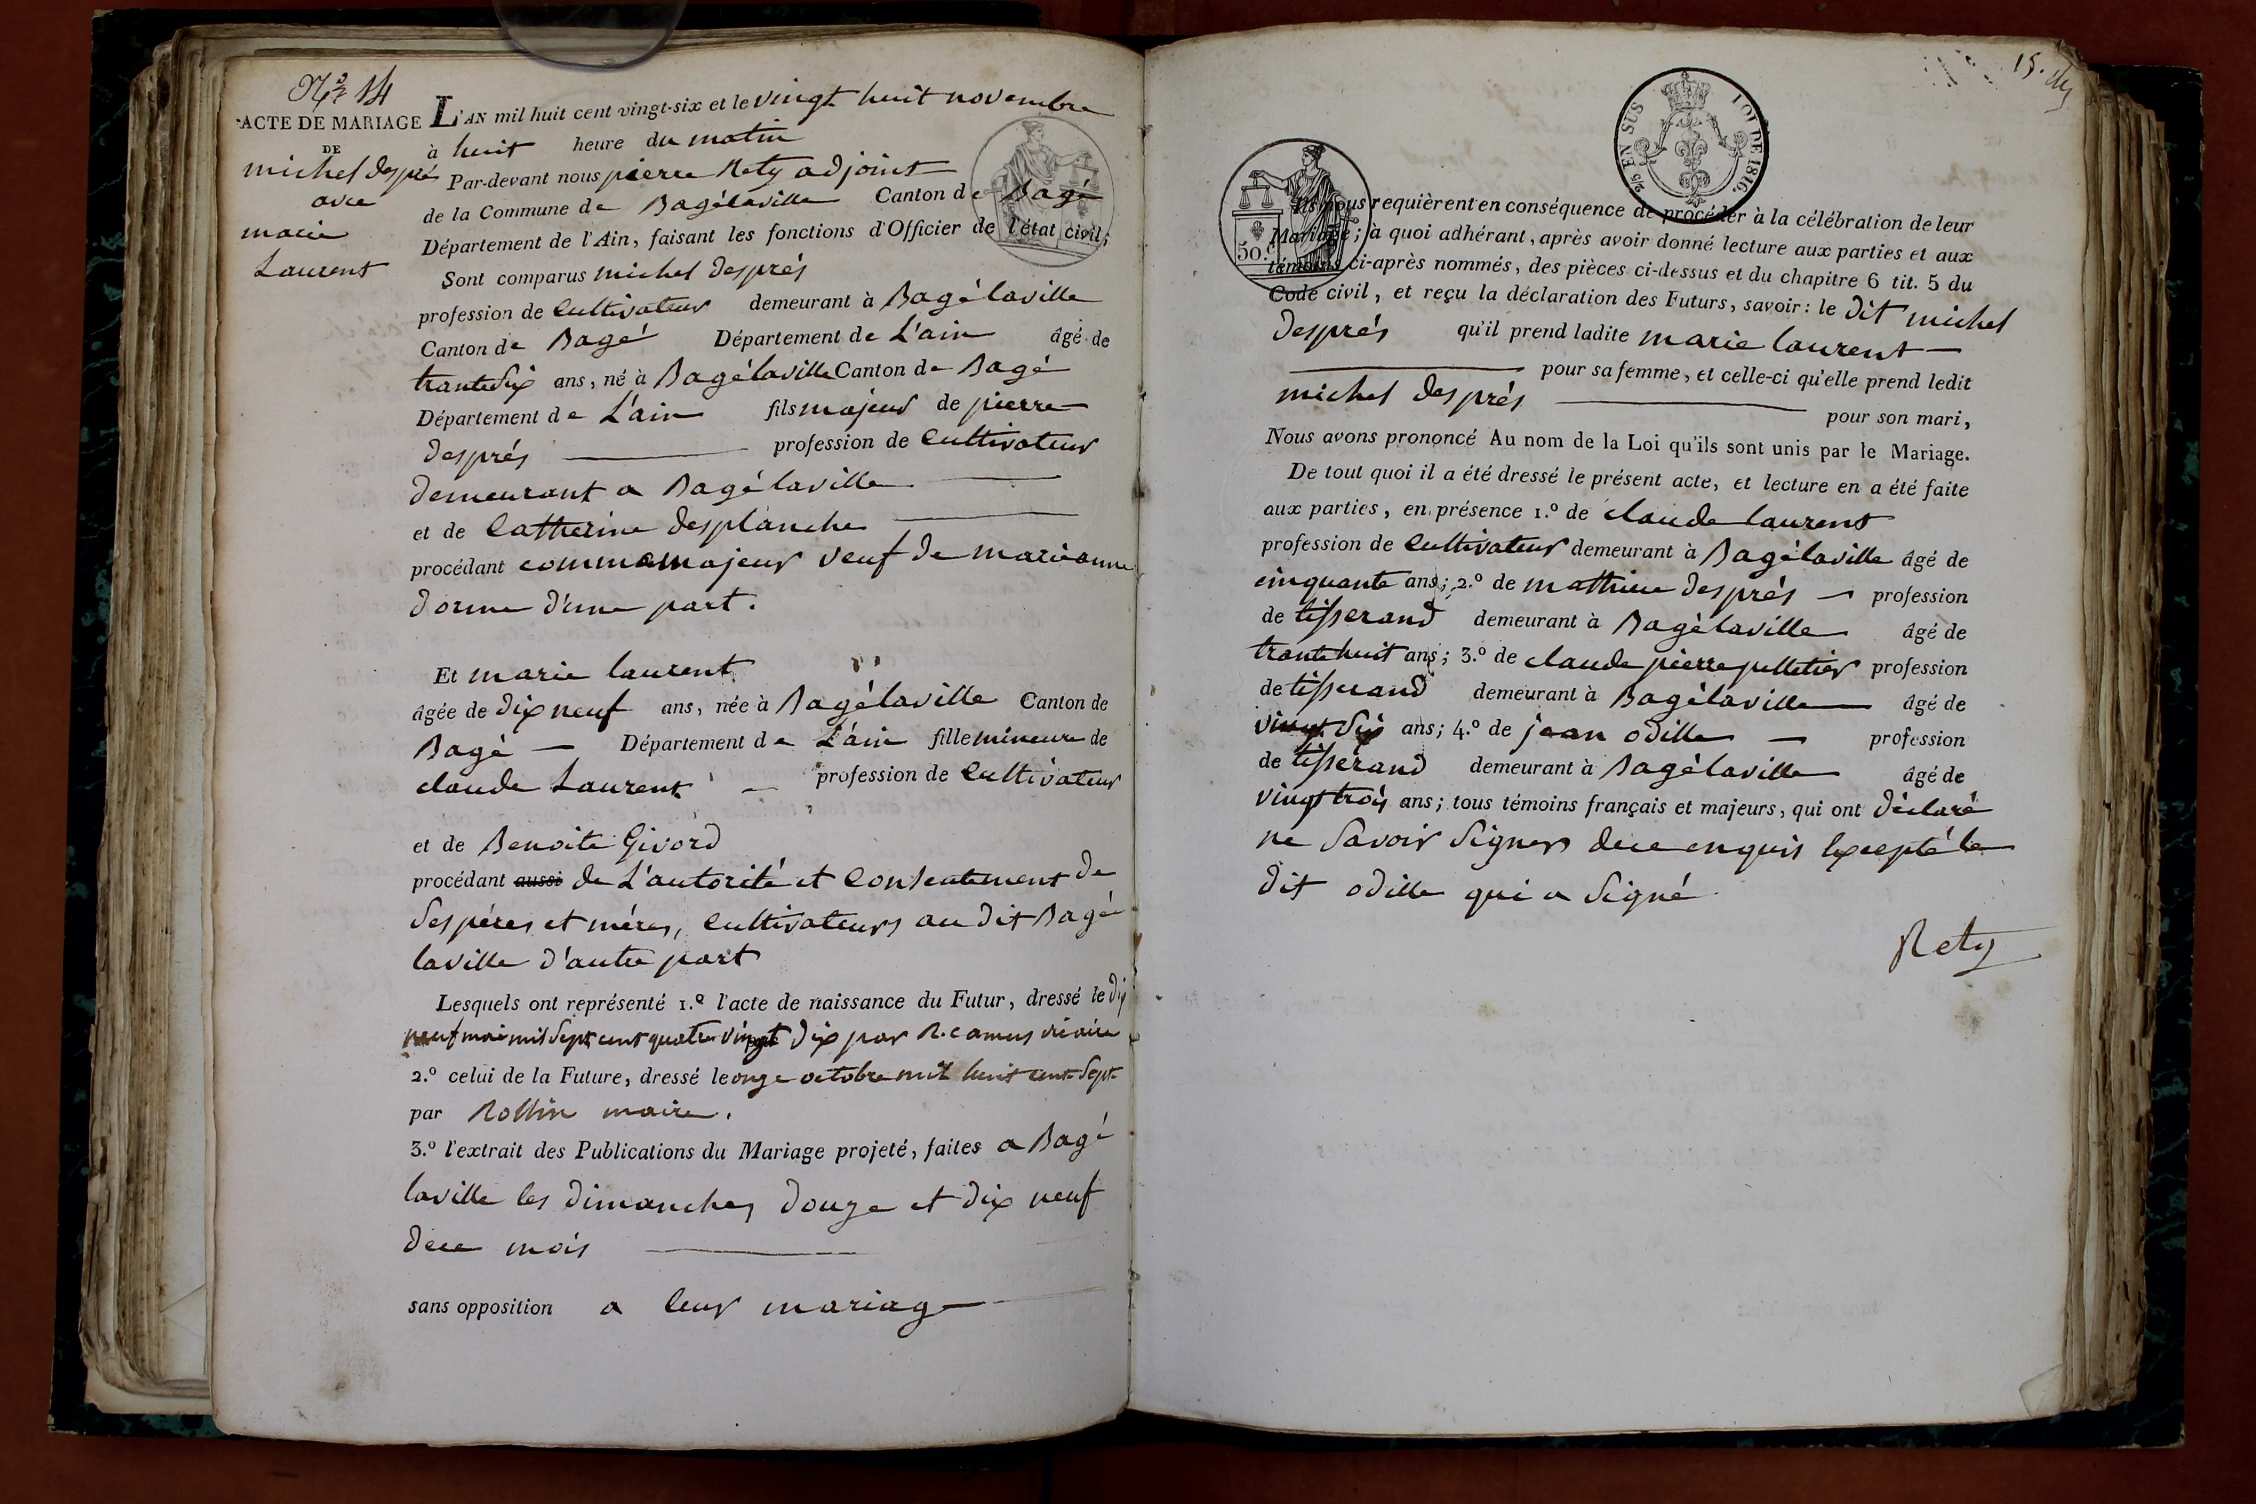 N° 14
ACTE DE MARIAGE
DE
michel després
avec
marie
Laurent
L'AN mil huit cent vingt-six et le vingt huit novembre
à huit heure du matin
Par-devant nous pierre Rety adjoint
de la Commune de Bagélaville Canton de Bagé
Département de l'Ain, faisant les fonctions d'Officier de l'état civil;
Sont comparus michel després
profession de Cultivateur demeurant à Bagélaville
Canton de Bagé Département de L'ain âgé de
trante six ans, né à Bagélaville Canton de Bagé
Département de L'ain fils majeur de pierre
després profession de Cultivateur
demeurant a Bagélaville
et de Catherine desplanche
procédant comme majeur veuf de marieanne
dorme d'une part.
Et marie laurent
âgée de dix neuf ans, née à Bagélaville Canton de
Bagé Département de L'ain fille mineure de
claude Laurent profession de Cultivateur
et de Benoite Givord
procédant aussi de L'autorité et Consentement de
ses péres et méres, Cultivateurs au dit Bagé
laville d'autre part
Lesquels ont représenté 1.º l'acte de naissance du Futur, dressé le dix
neuf mai mil sept cent quatre vingt dix par R. camus vicaire
2.º celui de la Future, dressé le onze octobre mil huit cent sept
par Rollin maire.
3.º l'extrait des Publications du Mariage projeté, faites a Bagé
laville les dimanches douze et dix neuf
dece mois
sans opposition a leur mariage
15.
2/5 EN SUS LOI DE 1816.
50.c
Ils nous requièrent en conséquence de procéder à la célébration de leur
Mariage; à quoi adhérant, après avoir donné lecture aux parties et aux
témoins ci-après nommés, des pièces ci-dessus et du chapitre 6 tit. 5 du
Code civil, et reçu la déclaration des Futurs, savoir: le dit michel
després qu'il prend ladite marie laurent
pour sa femme, et celle-ci qu'elle prend ledit
michel després pour son mari,
Nous avons prononcé Au nom de la Loi qu'ils sont unis par le Mariage.
De tout quoi il a été dressé le présent acte, et lecture en a été faite
aux parties, en présence 1.º de claude laurent
profession de Cultivateur demeurant à Bagélaville âgé de
cinquante ans; 2.º de mathieu després profession
de tisserand demeurant à Bagélaville âgé de
trante huit ans; 3.º de claude pierre pelletier profession
de tisserand demeurant à Bagélaville âgé de
vingt six ans; 4.º de jean odille profession
de tisserand demeurant à Bagélaville âgé de
vingt trois ans; tous témoins français et majeurs, qui ont déclaré
ne savoir signer dece enquis Excepté le
dit odille qui a signé
Rety